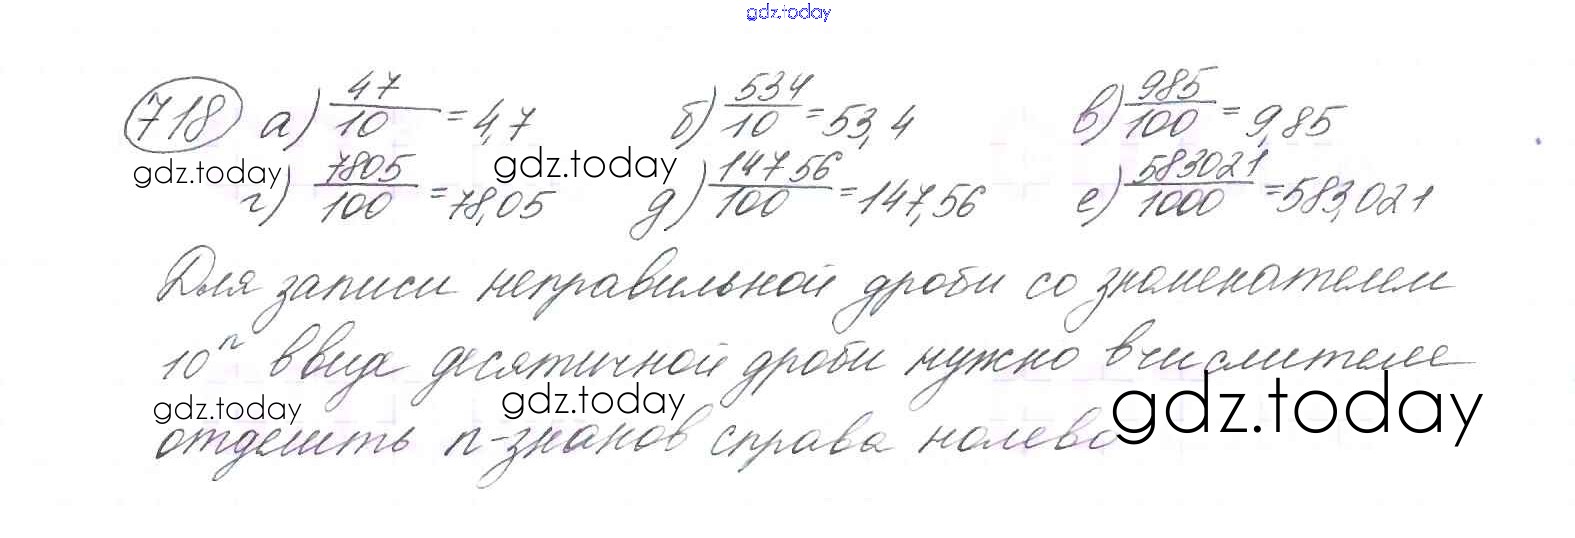 gdz.today
718 а) 47/10 = 4,7 б) 534/10 = 53,4 в) 985/100 = 9,85
gdz.today gdz.today
г) 7805/100 = 78,05 д) 14756/100 = 147,56 е) 583021/1000 = 583,021
Для записи неправильной дроби со знаменателем
10ⁿ в виде десятичной дроби нужно в числителе
gdz.today gdz.today gdz.today
отделить n-знаков справа налево